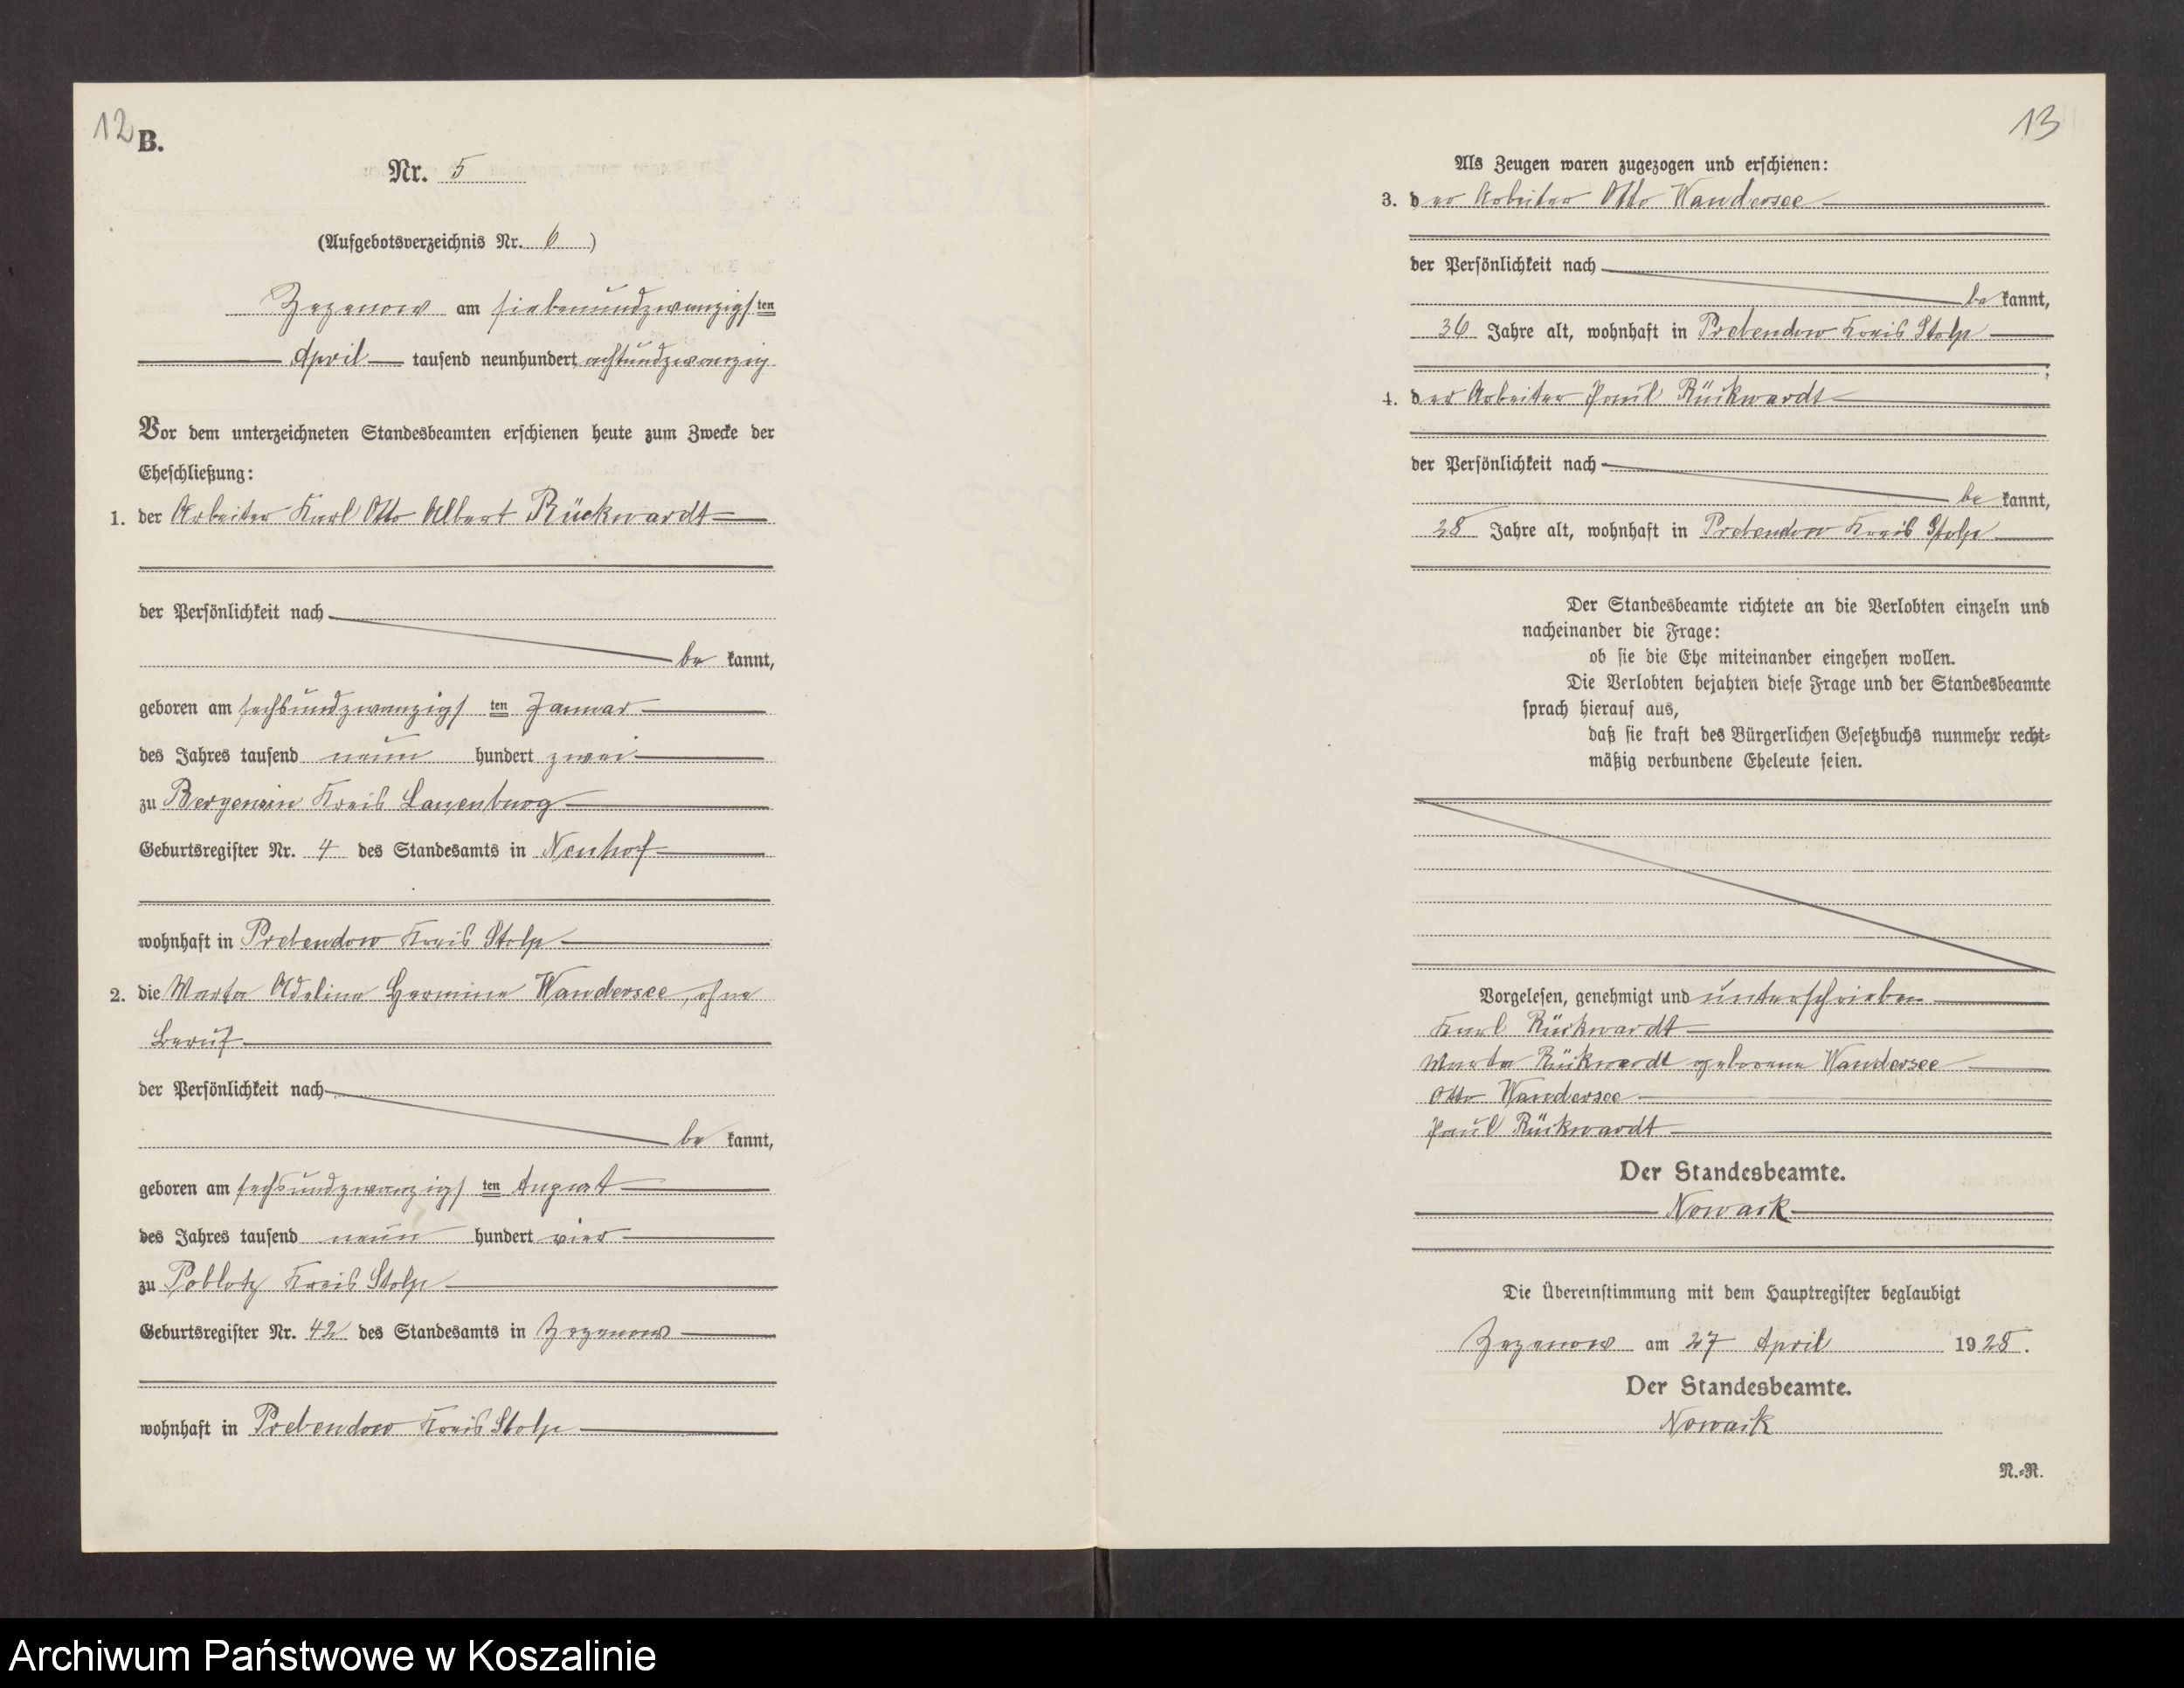 12
B.
Nr. 5
(Aufgebotsverzeichnis Nr. 6)
Zezenow am siebenundzwanzigsten
April tausend neunhundert achtundzwanzig
Vor dem unterzeichneten Standesbeamten erschienen heute zum Zwecke der
Eheschließung:
1. der Arbeiter Karl Otto Albert Rückwardt
der Persönlichkeit nach
bekannt,
geboren am sechsundzwanzigsten Januar
des Jahres tausend neun hundert zwei
zu Bergensin Kreis Lauenburg
Geburtsregister Nr. 4 des Standesamts in Neuhof
wohnhaft in Prebendow Kreis Stolp
2. die Marta Adeline Hermine Wandersee, ohne
Beruf
der Persönlichkeit nach
bekannt,
geboren am sechsundzwanzigsten August
des Jahres tausend neun hundert vier
zu Poblotz Kreis Stolp
Geburtsregister Nr. 42 des Standesamts in Zezenow
wohnhaft in Prebendow Kreis Stolp
13
Als Zeugen waren zugezogen und erschienen:
3. der Arbeiter Otto Wandersee
der Persönlichkeit nach
bekannt,
36 Jahre alt, wohnhaft in Prebendow Kreis Stolp
;
4. der Arbeiter Paul Rückwardt
der Persönlichkeit nach
bekannt,
28 Jahre alt, wohnhaft in Prebendow Kreis Stolp
Der Standesbeamte richtete an die Verlobten einzeln und
nacheinander die Frage:
ob sie die Ehe miteinander eingehen wollen.
Die Verlobten bejahten diese Frage und der Standesbeamte
sprach hierauf aus,
daß sie kraft des Bürgerlichen Gesetzbuchs nunmehr recht-
mäßig verbundene Eheleute seien.
Vorgelesen, genehmigt und unterschrieben
Karl Rückwardt
Marta Rückwardt geborene Wandersee
Otto Wandersee
Paul Rückwardt
Der Standesbeamte.
Nowack
Die Übereinstimmung mit dem Hauptregister beglaubigt
Zezenow am 27 April 1928.
Der Standesbeamte.
Nowack
N.-R.
Archiwum Państwowe w Koszalinie